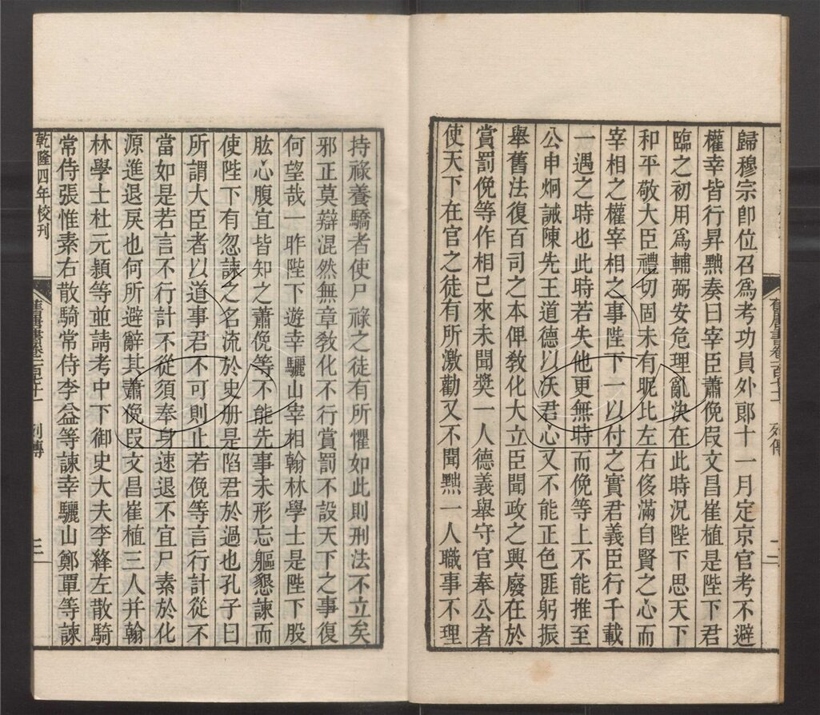 歸穆宗卽位召爲考功員外郎十一月定京官考不避
權幸皆行昇黜奏曰宰臣蕭俛段文昌崔植是陛下君
臨之初用爲輔弼安危理亂決在此時況陛下思天下
和平敬大臣禮切固未有昵比左右侈滿自賢之心而
宰相之權宰相之事陛下一以付之實君義臣行千載
一遇之時也此時若失他更無時而俛等上不能推至
公申炯誡陳先王道德以沃君心又不能正色匪躬振
舉舊法復百司之本俾敎化大立臣聞政之興廢在於
賞罰俛等作相已來未聞獎一人德義舉守官奉公者
使天下在官之徒有所激勸又不聞黜一人職事不理
持祿養驕者使尸祿之徒有所懼如此則刑法不立矣
邪正莫辯混然無章敎化不行賞罰不設天下之事復
何望哉一昨陛下遊幸驪山宰相翰林學士是陛下股
肱心腹宜皆知之蕭俛等不能先事未形忘軀懇諫而
使陛下有忽諫之名流於史册是陷君於過也孔子曰
所謂大臣者以道事君不可則止若俛等言行計從不
當如是若言不行計不從須奉身速退不宜尸素於化
源進退戾也何所避辭其蕭俛段文昌崔植三人并翰
林學士杜元頴等並請考中下御史大夫李絳左散騎
常侍張惟素右散騎常侍李益等諫幸驪山鄭覃等諫
乾隆四年校刊
舊唐書卷一百七十一 列傳
三